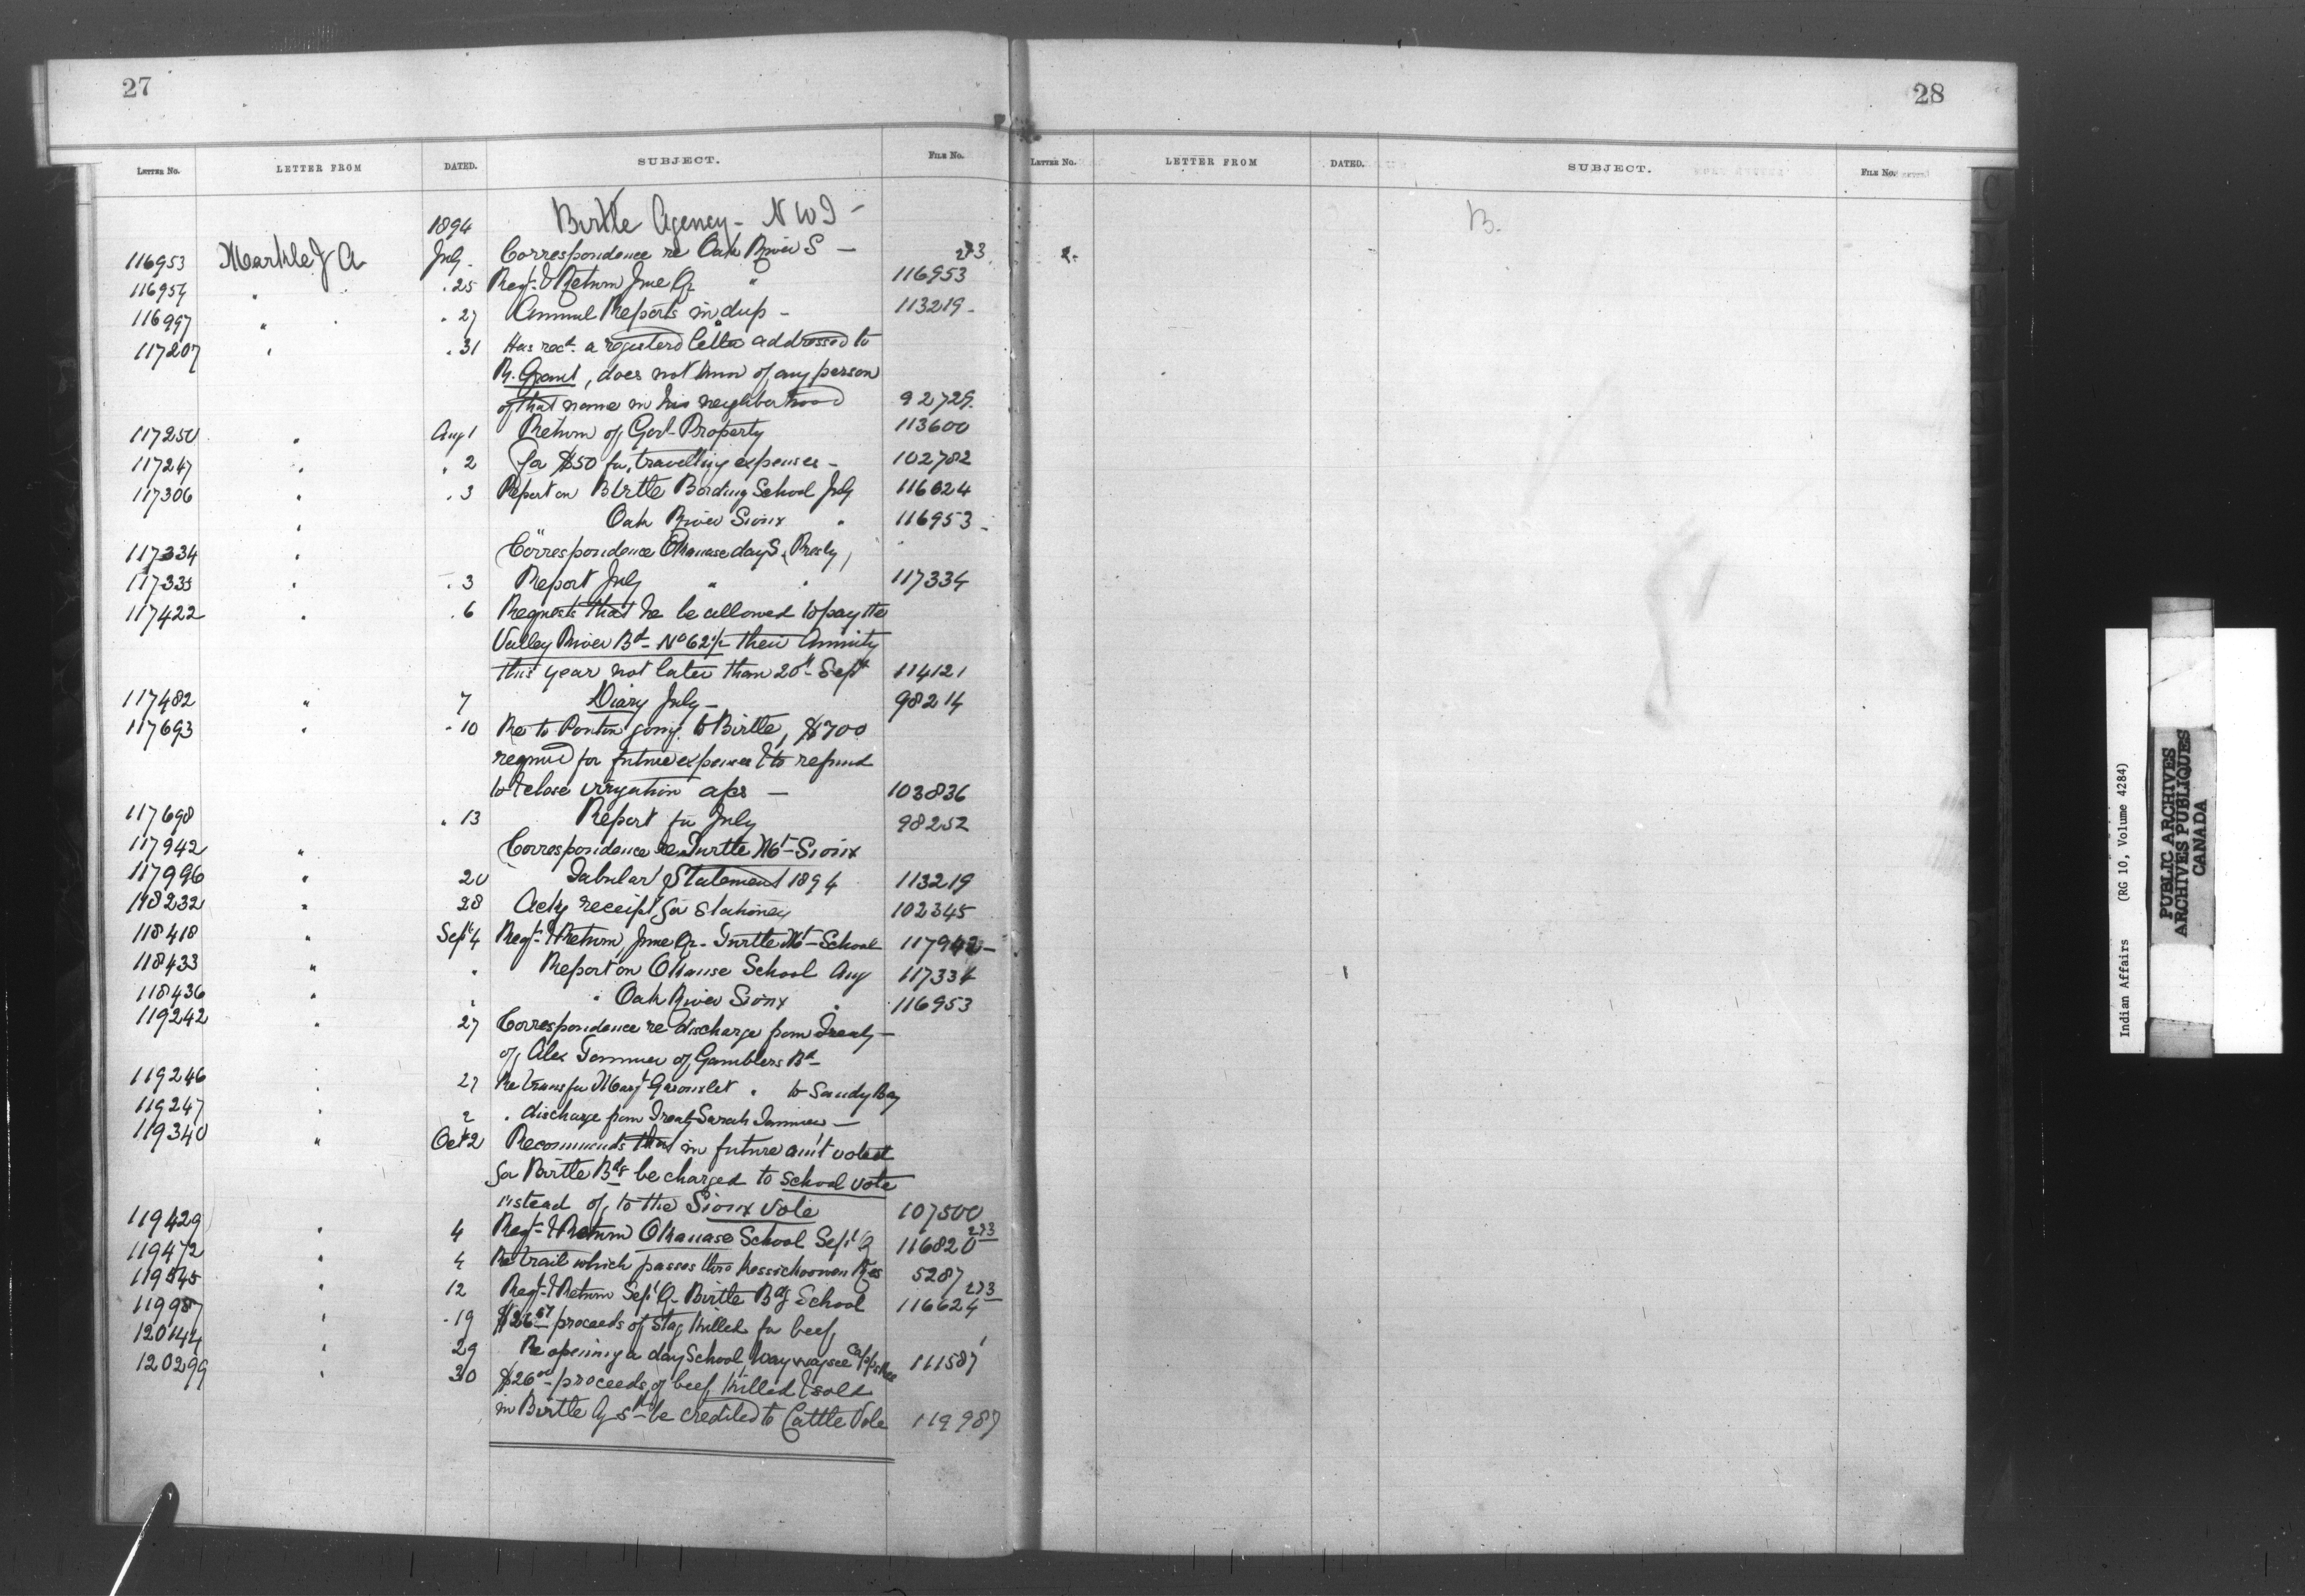 27
LETTER NO. LETTER FROM DATED. SUBJECT. FILE NO.
1894 Birtle Agency - N W T -
116953 Markle J A July. Correspondence re Oak River S - 273
116954 " . 25 Regr. & Return June Qr " 116953
116997 " . 27 Annual Reports in dup - 113219 -
117207 " . 31 Has recd. a registered letter addressed to
R. Grant, does not know of any person
of that name in his neighborhood 92729.
117250 " Aug 1 Return of Govt Property 113600
117247 " . 2 for $50 for travelling expenses - 102782
117306 " . 3 Report on Birtle Bording School July 116624
" Oak River Sioux " 116953 -
117334 " Correspondence Okanase day S. (Presby)
117335 " . 3 Report July " " 117334
117422 " . 6 Requests that he be allowed to pay the
Valley River Bd - No 62 1/2 their Annuity
this year not later than 20th Sept 114121
117482 " 7 Diary July - 98214
117693 " . 10 Re to Ponton going to Birtle, $700
required for future expenses & to refund
to & close irrigation a/cs - 103836
117698 . 13 Report for July 98252
117942 " Correspondence re Turtle Mt - Sioux
117996 " 20 Tabular Statement 1894 113219
118232 " 28 Ackg receipt for Stationery 102345
118418 " Sept 4 Regr. & Return June Qr - Turtle Mt - School 117942 -
118433 " " Report on Okanase School Aug 117334
118436 " " " Oak River Sioux " 116953
119242 " 27 Correspondence re discharge from Treaty -
of Alex Tanner of Gamblers Bd -
119246 " 27 Re transfer Margt " to Sandy Bay
119247 " 2 " discharge from Treaty Sarah Tanner -
119340 " Oct 2 Recommends that in future am't voted
for Birtle Bds be charged to School vote
instead of to the Sioux Vote 107500
119429 " 4 Regr. & Return Okanase School Sept Q 116820 273
119472 " 4 Re trail which passes thro Keesickoowen Res 5287
119545 " 12 Regr. & Return Sept Q - Birtle Bdg School 116624 273
119987 " . 19 $26.67 proceeds of Stag killed for beef
120144 " 29 Re opening a day School Waywaysee Cappo's Res 111587
120299 " 30 $26.00 - proceeds of beef killed & sold
in Birtle Ag be credited to Cattle Vote 119987
28
LETTER NO. LETTER FROM DATED. SUBJECT. FILE NO.
B.
Indian Affairs (RG 10, Volume 4284)
PUBLIC ARCHIVES
ARCHIVES PUBLIQUES
CANADA